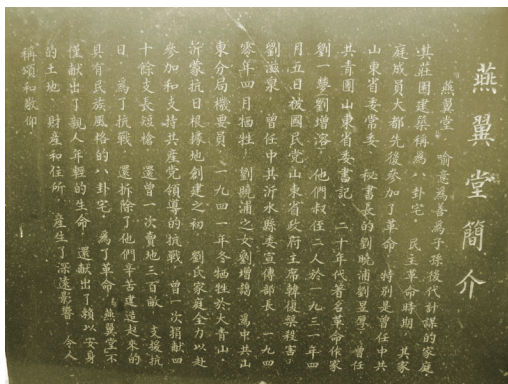 燕翼堂簡介
燕翼堂 喻意為善為子孫後代計謀的家庭
其莊園建築稱為八卦宅 民主革命時期 其家
庭成員大都先後參加了革命 特別是曾任中共
山東省委常委 秘書長的劉曉浦劉昱學 曾任
共青團山東省委書記 二十年代著名革命作家
劉一夢劉增溶 他們叔侄二人於一九三一年四
月五日被國民党山東省政府主席韓復榘殺害
劉滋泉 曾任中共沂水縣委宣傳部長 一九四
零年四月牺牲 劉曉浦之女劉增藹 為中共山
東分局機要員 一九四一年冬牺牲於大青山
沂蒙抗日根據地創建之初 劉氏家庭全力以赴
參加和支持共産党領導的抗戰 曾一次捐献四
十餘支長短槍 還曾一次賣地三百畝 支援抗
日 為了抗戰 還拆除了他們辛苦建造起來的
具有民族風格的八卦宅 為了革命 燕翼堂不
僅献出了親人年輕的生命 還献出了賴以安身
的土地 財産和住所 産生了深遠影響 令人
稱頌和敬仰